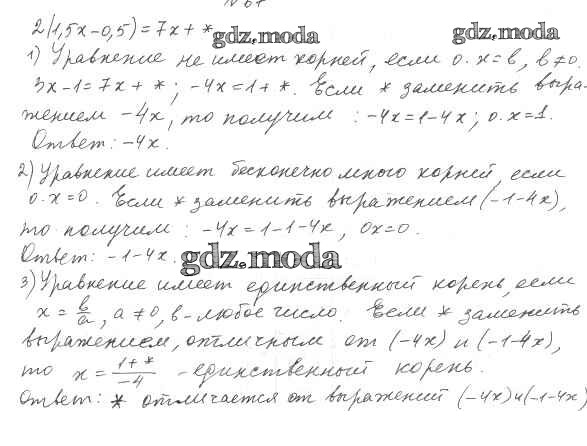 2(1,5x-0,5)=7x+*
gdz.moda
gdz.moda
1) Уравнение не имеет корней, если 0·x=b, b≠0.
3x-1=7x+*; -4x=1+*. Если * заменить выра-
жением -4x, то получим: -4x=1-4x; 0·x=1.
Ответ: -4x.
2) Уравнение имеет бесконечно много корней, если
0·x=0. Если * заменить выражением (-1-4x),
то получим: -4x=1-1-4x, 0x=0.
Ответ: -1-4x.
gdz.moda
3) Уравнение имеет единственный корень, если
x=b/a, a≠0, b-любое число. Если * заменить
выражением, отличным от (-4x) и (-1-4x),
то x=1+*/-4 - единственный корень.
Ответ: * отличается от выражений (-4x) и (-1-4x)